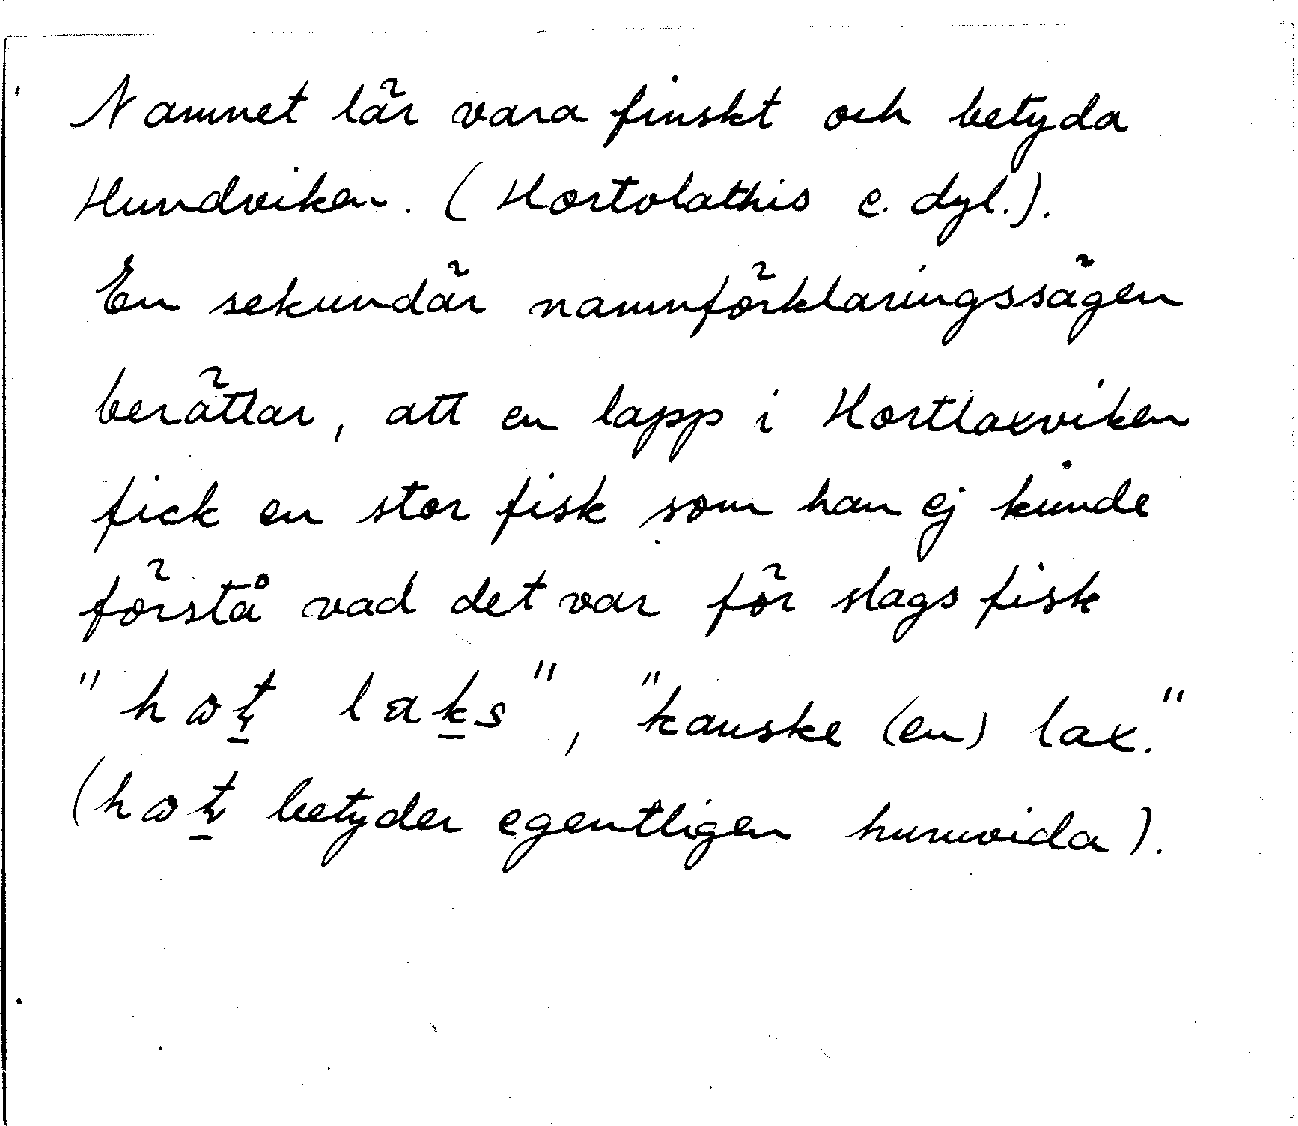 Namnet lär vara finskt och betyda
Hundviken. (Hortolathis e. dyl.).
En sekundär namnförklaringssägen
berättar, att en lapp i Hortlaxviken
fick en stor fisk som han ej kunde
förstå vad det var för slags fisk
" laks", "kanske (en) lax."
( betyder egentligen huruvida).